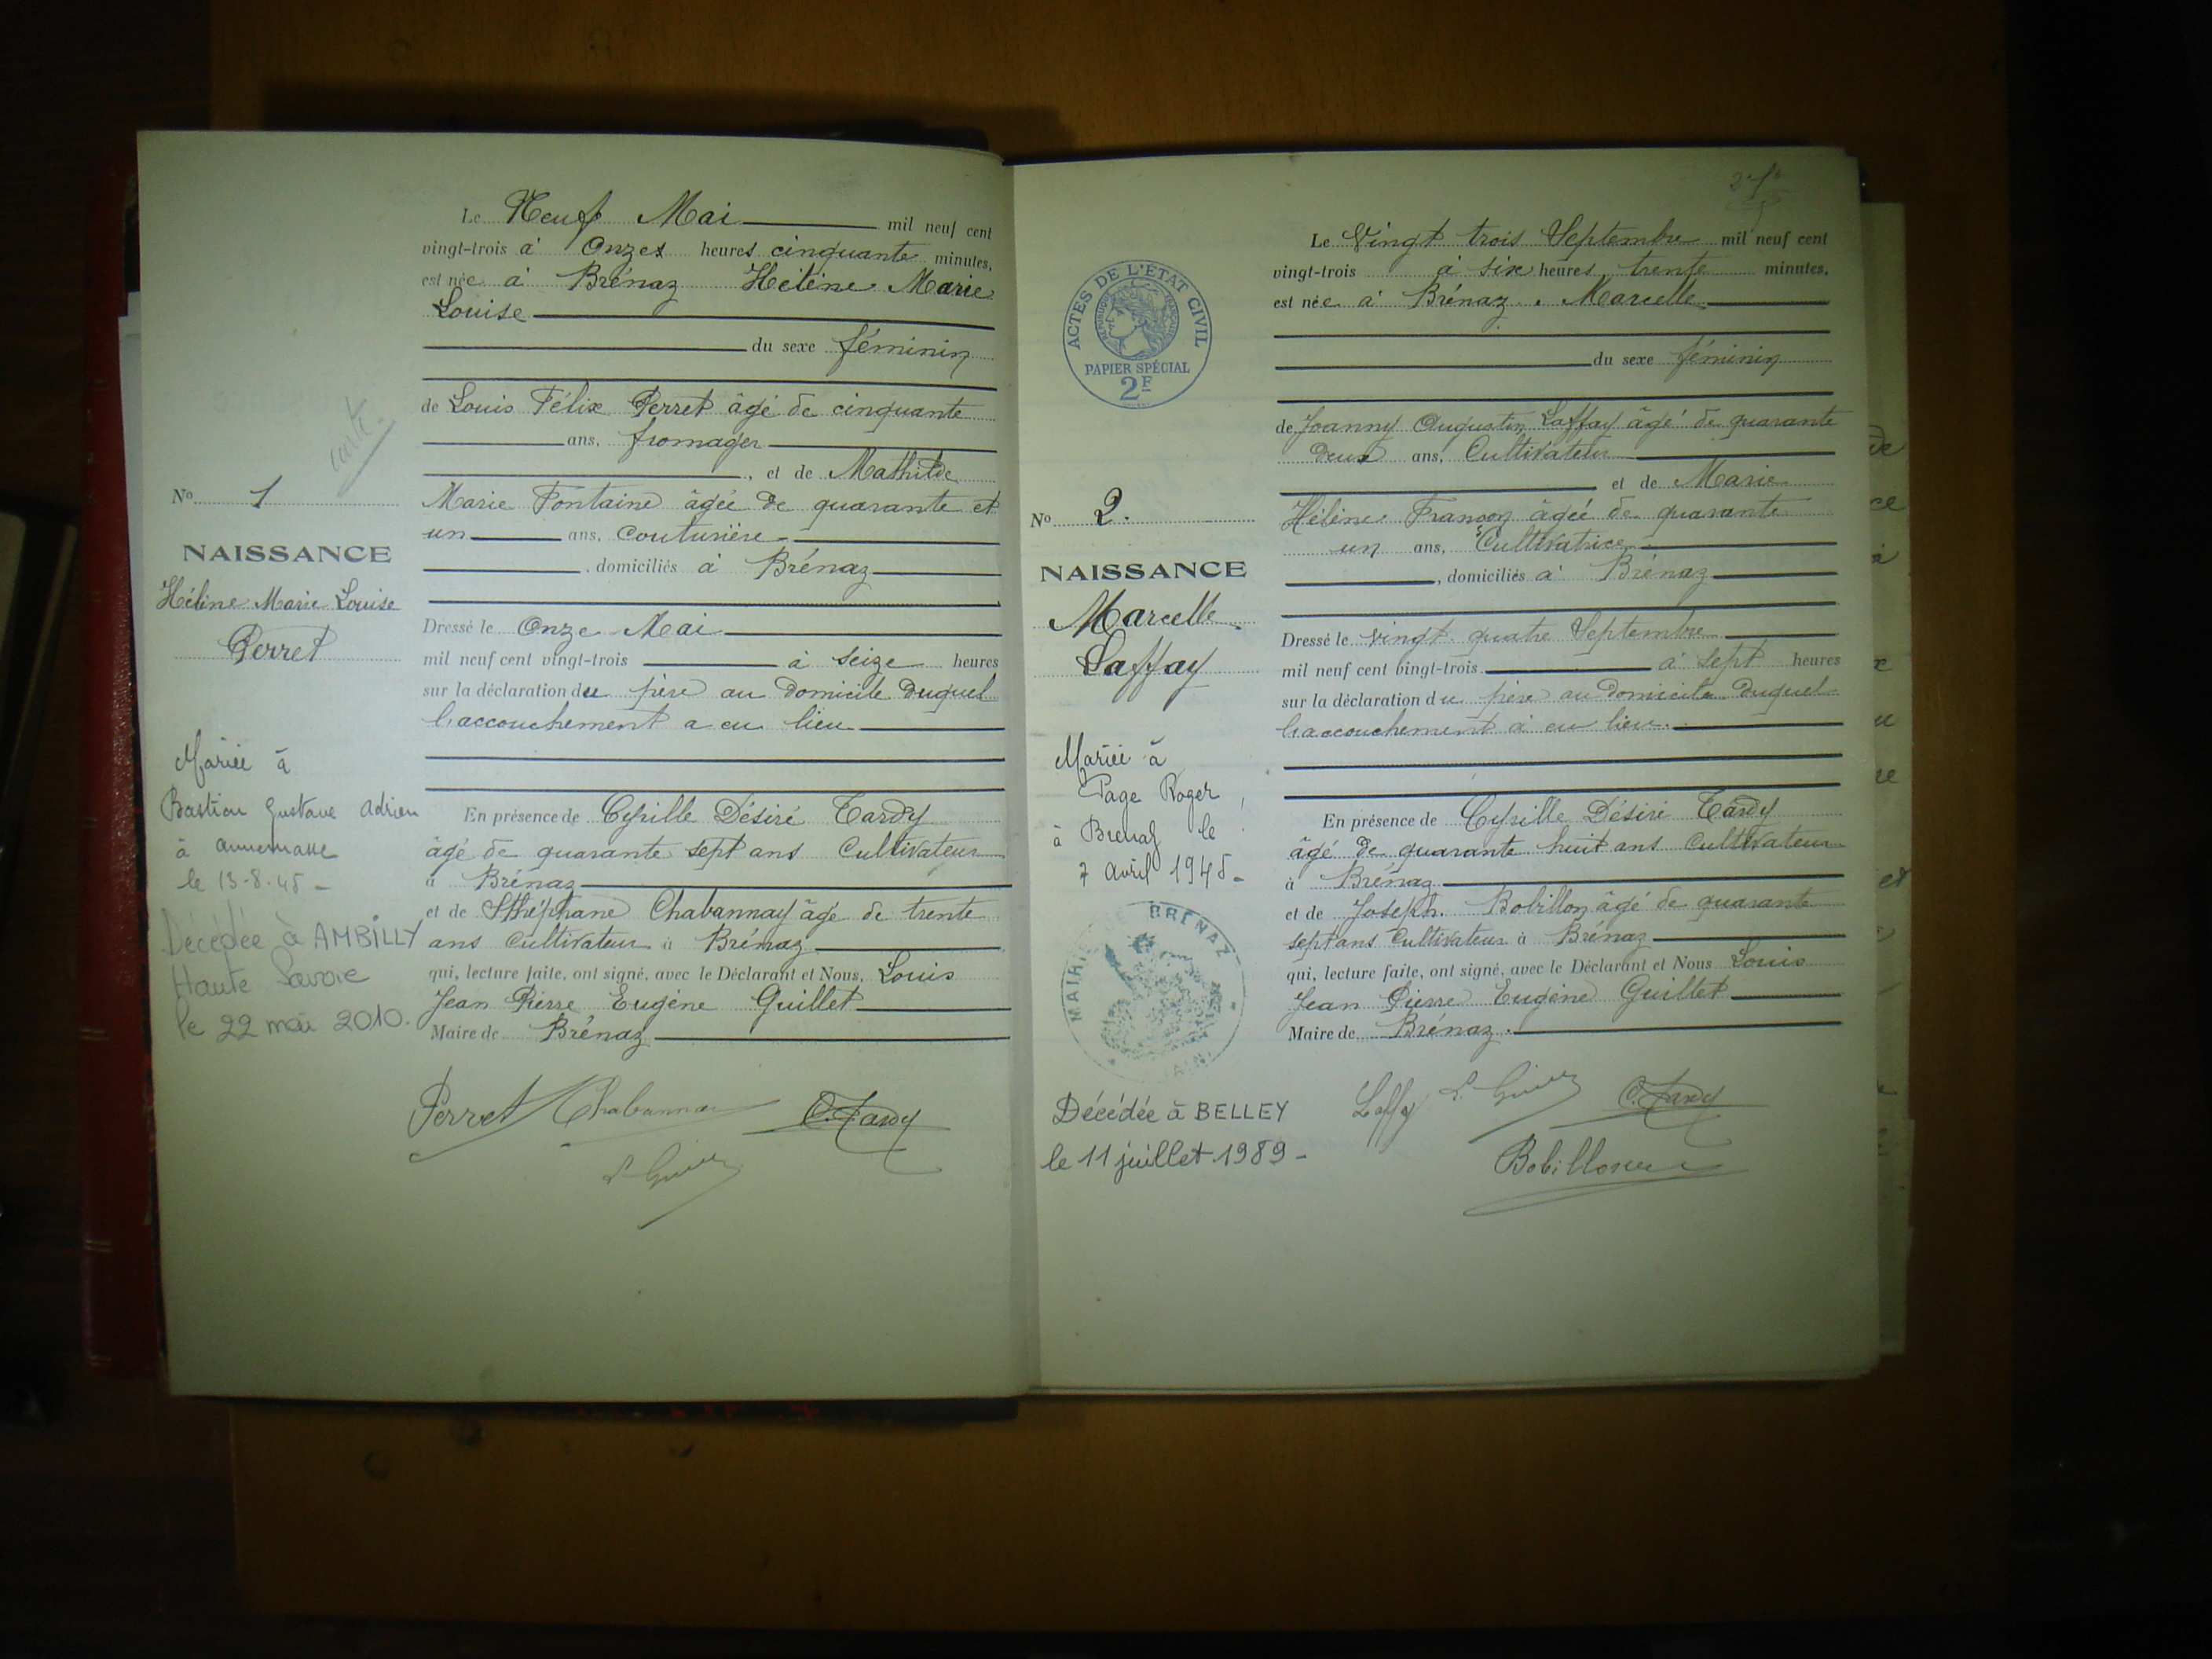 Le Neuf Mai mil neuf cent
vingt-trois à Onzes heures cinquante minutes,
est née à Brénaz Hélène Marie
Louise
du sexe féminin
de Louis Félix Perret âgé de cinquante
ans, fromager
, et de Mathilde
Marie Fontaine âgée de quarante et
un ans, couturière
, domiciliés à Brénaz
Dressé le Onze Mai
mil neuf cent vingt-trois à seize heures
sur la déclaration du père au domicile duquel
l'accouchement a eu lieu
En présence de Cyrille Désiré Tardy
âgé de quarante sept ans Cultivateur
à Brénaz
et de Sthéphane Chabannay âgé de trente
ans cultivateur à Brénaz
qui, lecture faite, ont signé, avec le Déclarant et Nous, Louis
Jean Pierre Eugène Guillet
Maire de Brénaz
Perret Chabannay C. Tardy
L. Guillet
carte
No 1
NAISSANCE
Hélène Marie Louise
Perret
Mariée à
Bastian Gustave Adrien
à Annemasse
le 13-8-45 -
Décédée à AMBILLY
Haute Savoie
le 22 mai 2010.
ACTES DE L'ÉTAT CIVIL
RÉPUBLIQUE FRANÇAISE
PAPIER SPÉCIAL
2F
No 2.
NAISSANCE
Marcelle
Laffay
Mariée à
Page Roger
à Brenaz le
7 avril 1945 -
MAIRIE DE BRÉNAZ
(AIN)
Décédée à BELLEY
le 11 juillet 1989 -
Le Vingt trois Septembre mil neuf cent
vingt-trois à six heures trente minutes,
est née à Brénaz. Marcelle
du sexe féminin
de Joanny Augustin Laffay âgé de quarante
deux ans, Cultivateur
et de Marie
Hélène Françon âgée de quarante
un ans, Cultivatrice
, domiciliés à Brénaz
Dressé le vingt quatre Septembre
mil neuf cent vingt-trois à sept heures
sur la déclaration du père au domicile duquel
l'accouchement a eu lieu.
En présence de Cyrille Désiré Tardy
âgé de quarante huit ans Cultivateur
à Brénaz
et de Joseph. Bobillon âgé de quarante
sept ans Cultivateur à Brénaz
qui, lecture faite, ont signé, avec le Déclarant et Nous Louis
Jean Pierre Eugène Guillet
Maire de Brénaz.
Laffay L. Guillet C. Tardy
Bobillon